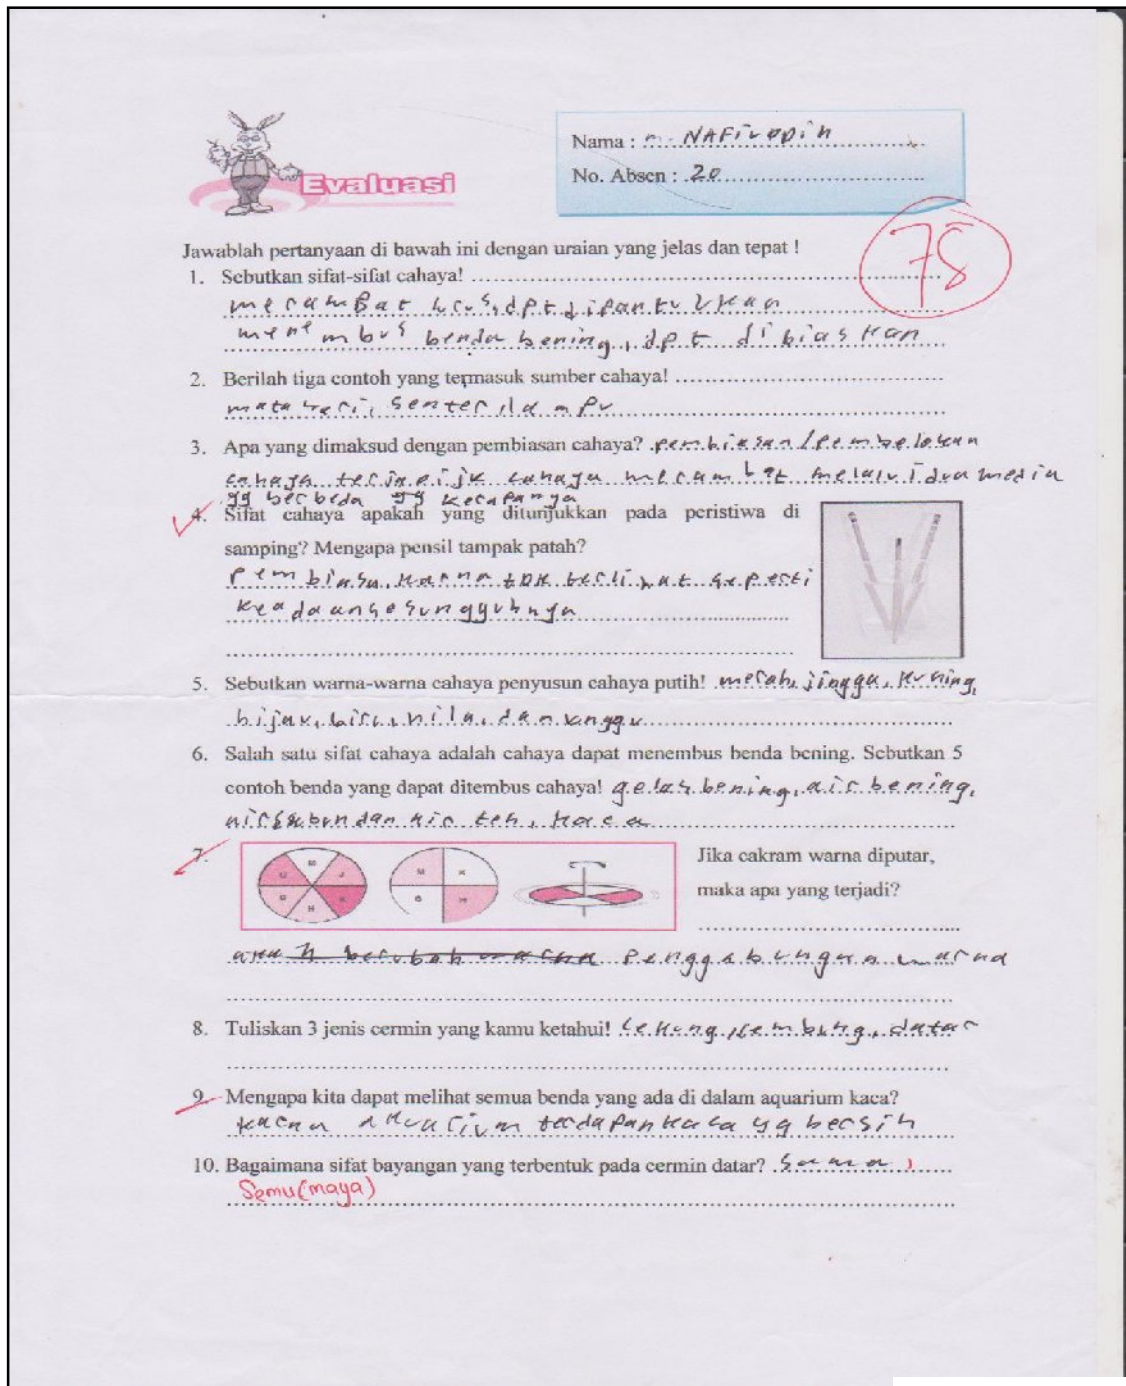 Evaluasi
Nama : m. NAFiroDin
No. Absen : 20
78
Jawablah pertanyaan di bawah ini dengan uraian yang jelas dan tepat !
1. Sebutkan sifat-sifat cahaya!
merambat lurus, dpt dipantulkan
menembus benda bening, dpt dibiaskan
2. Berilah tiga contoh yang termasuk sumber cahaya!
matahari, senter, lampu
3. Apa yang dimaksud dengan pembiasan cahaya? pembiasan/pembelokan
cahaya terjadi jk cahaya merambat melalui dua media
yg berbeda yg kerapanya
4. Sifat cahaya apakah yang ditunjukkan pada peristiwa di
samping? Mengapa pensil tampak patah?
pembiasa, karna tdk terlihat seperti
keadaan sesungguhnya
5. Sebutkan warna-warna cahaya penyusun cahaya putih! merah, jingga, kuning,
hijau, biru, nila, dan unggu
6. Salah satu sifat cahaya adalah cahaya dapat menembus benda bening. Sebutkan 5
contoh benda yang dapat ditembus cahaya! gelas bening, air bening,
air sabun dan air teh, kaca
7.
M
U J
B K
H
M K
B H
Jika cakram warna diputar,
maka apa yang terjadi?
berubah warna penggabungan warna
8. Tuliskan 3 jenis cermin yang kamu ketahui! cekung, cembung, datar
9. Mengapa kita dapat melihat semua benda yang ada di dalam aquarium kaca?
karna akuarium terdapan kaca yg bersih
10. Bagaimana sifat bayangan yang terbentuk pada cermin datar? sama,
Semu (maya)